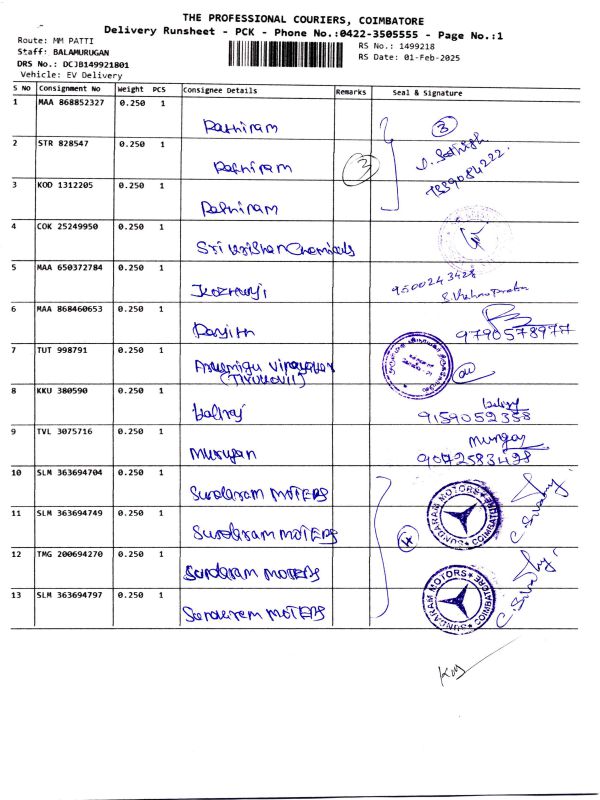 THE PROFESSIONAL COURIERS, COIMBATORE
Delivery Runsheet - PCK - Phone No.:0422-3505555 - Page No.:1
Route: MM PATTI
Staff: BALAMURUGAN
DRS No.: DCJB149921801
Vehicle: EV Delivery
RS No.: 1499218
RS Date: 01-Feb-2025
S No Consignment No Weight PCS Consignee Details Remarks Seal & Signature
1 MAA 868852327 0.250 1 Pathiram
3
2 STR 828547 0.250 1 Pathiram 3
3 KOD 1312205 0.250 1 Pathiram
4 COK 25249950 0.250 1 Sri Krishan Chemicals
5 MAA 650372784 0.250 1
9500243428
6 MAA 868460653 0.250 1 Ranjith
9790578977
7 TUT 998791 0.250 1 Vinayaker
8 KKU 380590 0.250 1 balraj
9159052358
9 TVL 3075716 0.250 1 Murugan
9072583498
10 SLM 363694704 0.250 1 Sundaram MOTERS
SUNDARAM MOTORS COIMBATORE
11 SLM 363694749 0.250 1 Sundaram MOTERS
12 TMG 200694270 0.250 1 Sundaram MOTERS
SUNDARAM MOTORS COIMBATORE
13 SLM 363694797 0.250 1 Sundaram MOTERS